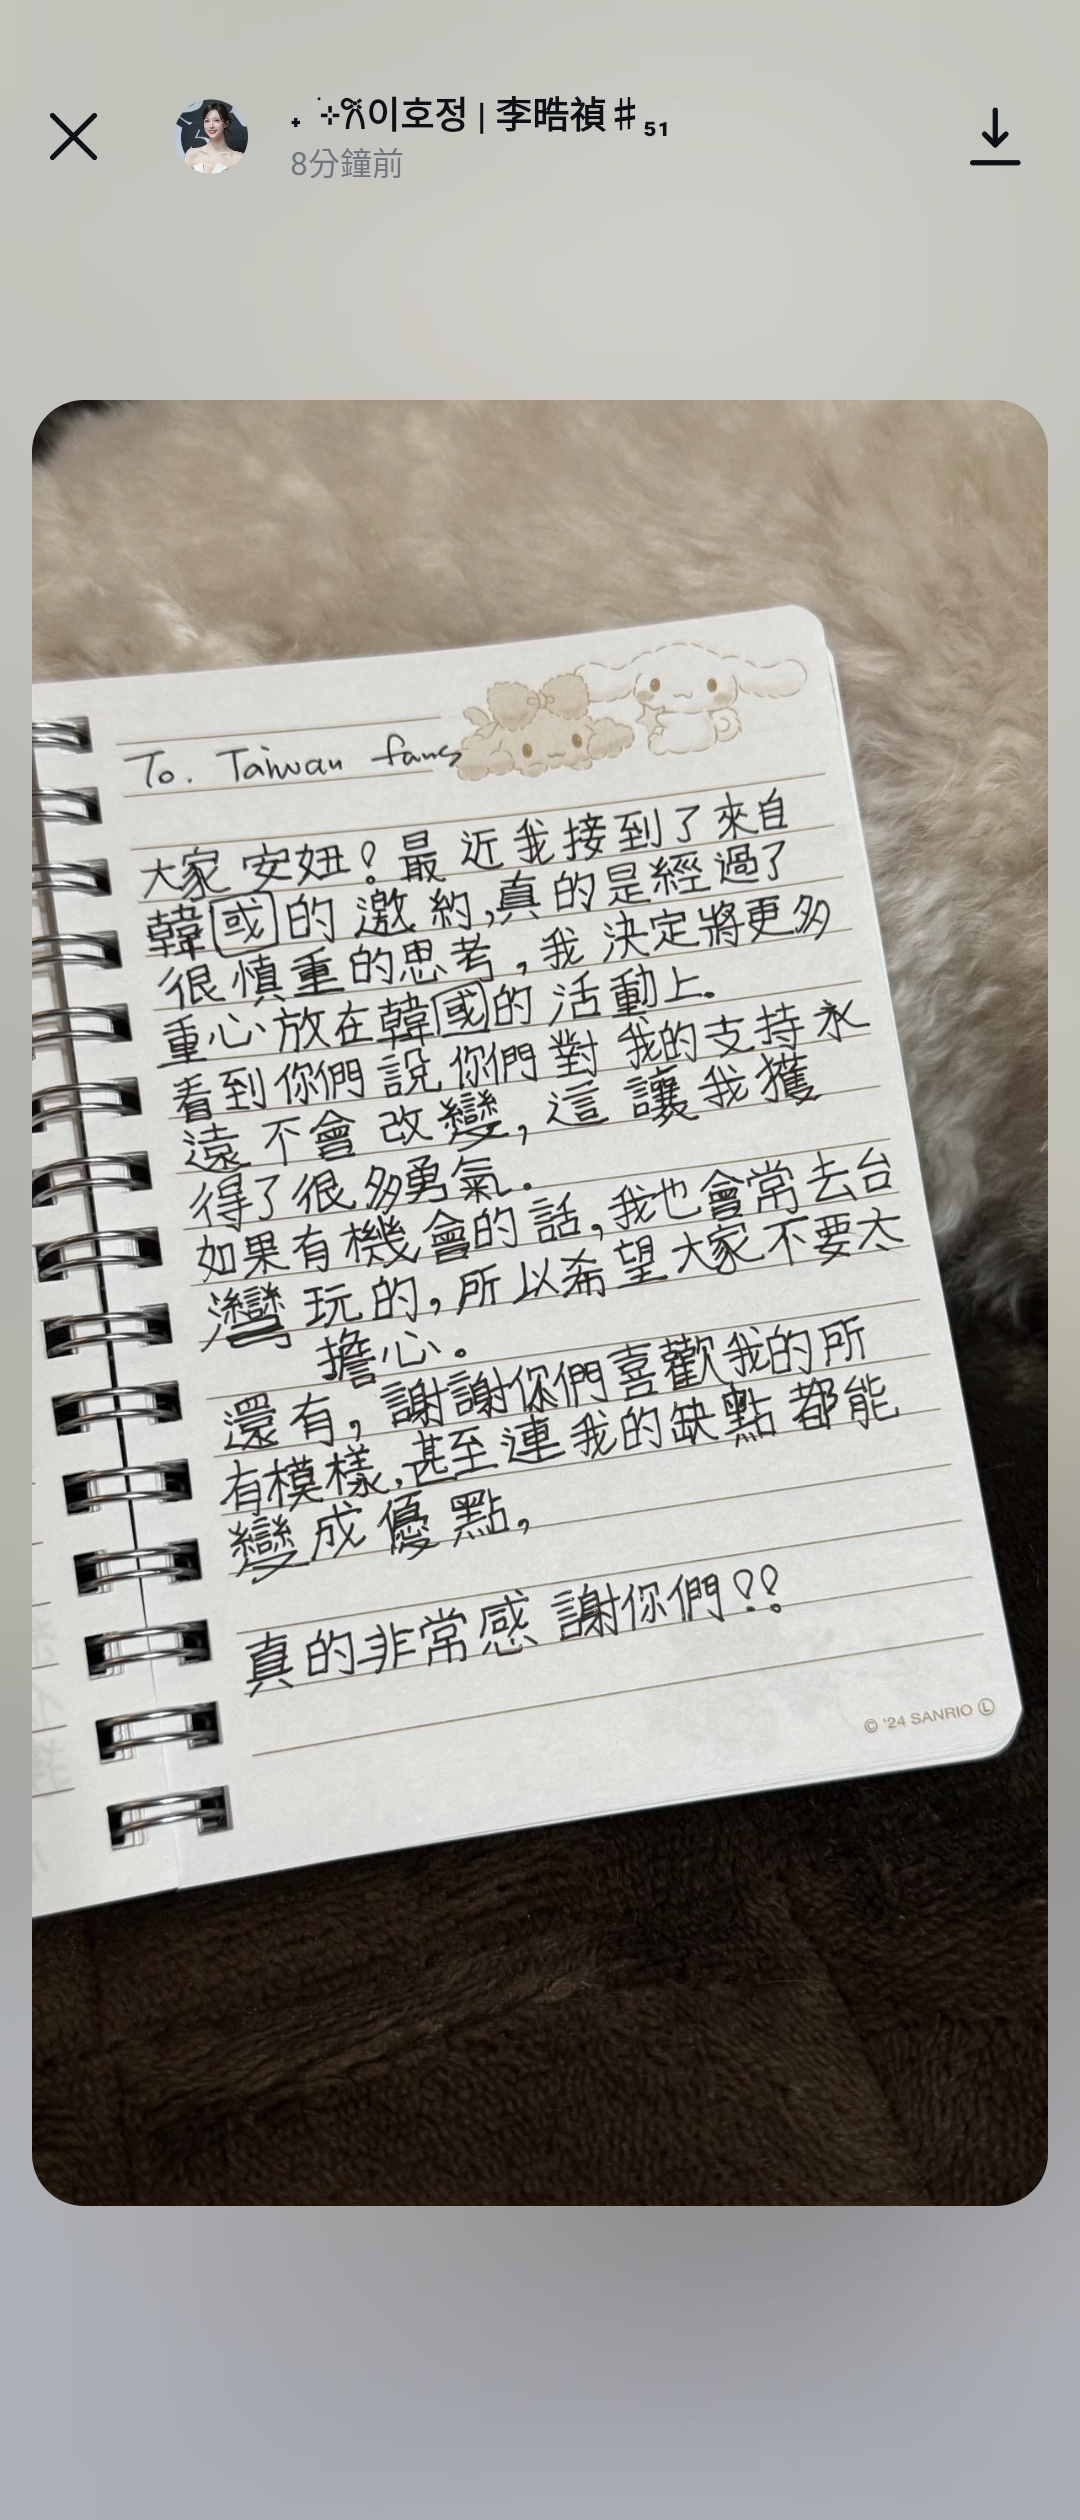 ˖ ݁⊹𐙚이호정 | 李晧禎♯₅₁
8分鐘前
To. Taiwan fans
大家 安妞! 最近我接到了來自
韓國的邀約,真的是經過了
很慎重的思考,我決定將更多
重心放在韓國的活動上。
看到你們說你們對我的支持永
遠不會改變,這讓我獲
得了很多勇氣.
如果有機會的話,我也會常去台
灣玩的,所以希望大家不要太
擔心。
還有,謝謝你們喜歡我的所
有模樣,甚至連我的缺點都能
變成優點,
真的非常感謝你們!!
© '24 SANRIO Ⓛ